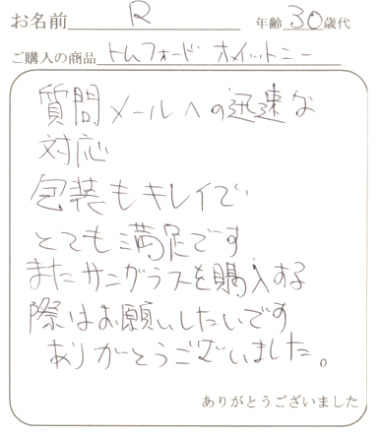 お名前 R 年齢 30 歳代
ご購入の商品 トムフォード ホイットニー
質問メールへの迅速な
対応
包装もキレイで
とても満足です
またサングラスを購入する
際はお願いしたいです
ありがとうございました。
ありがとうございました